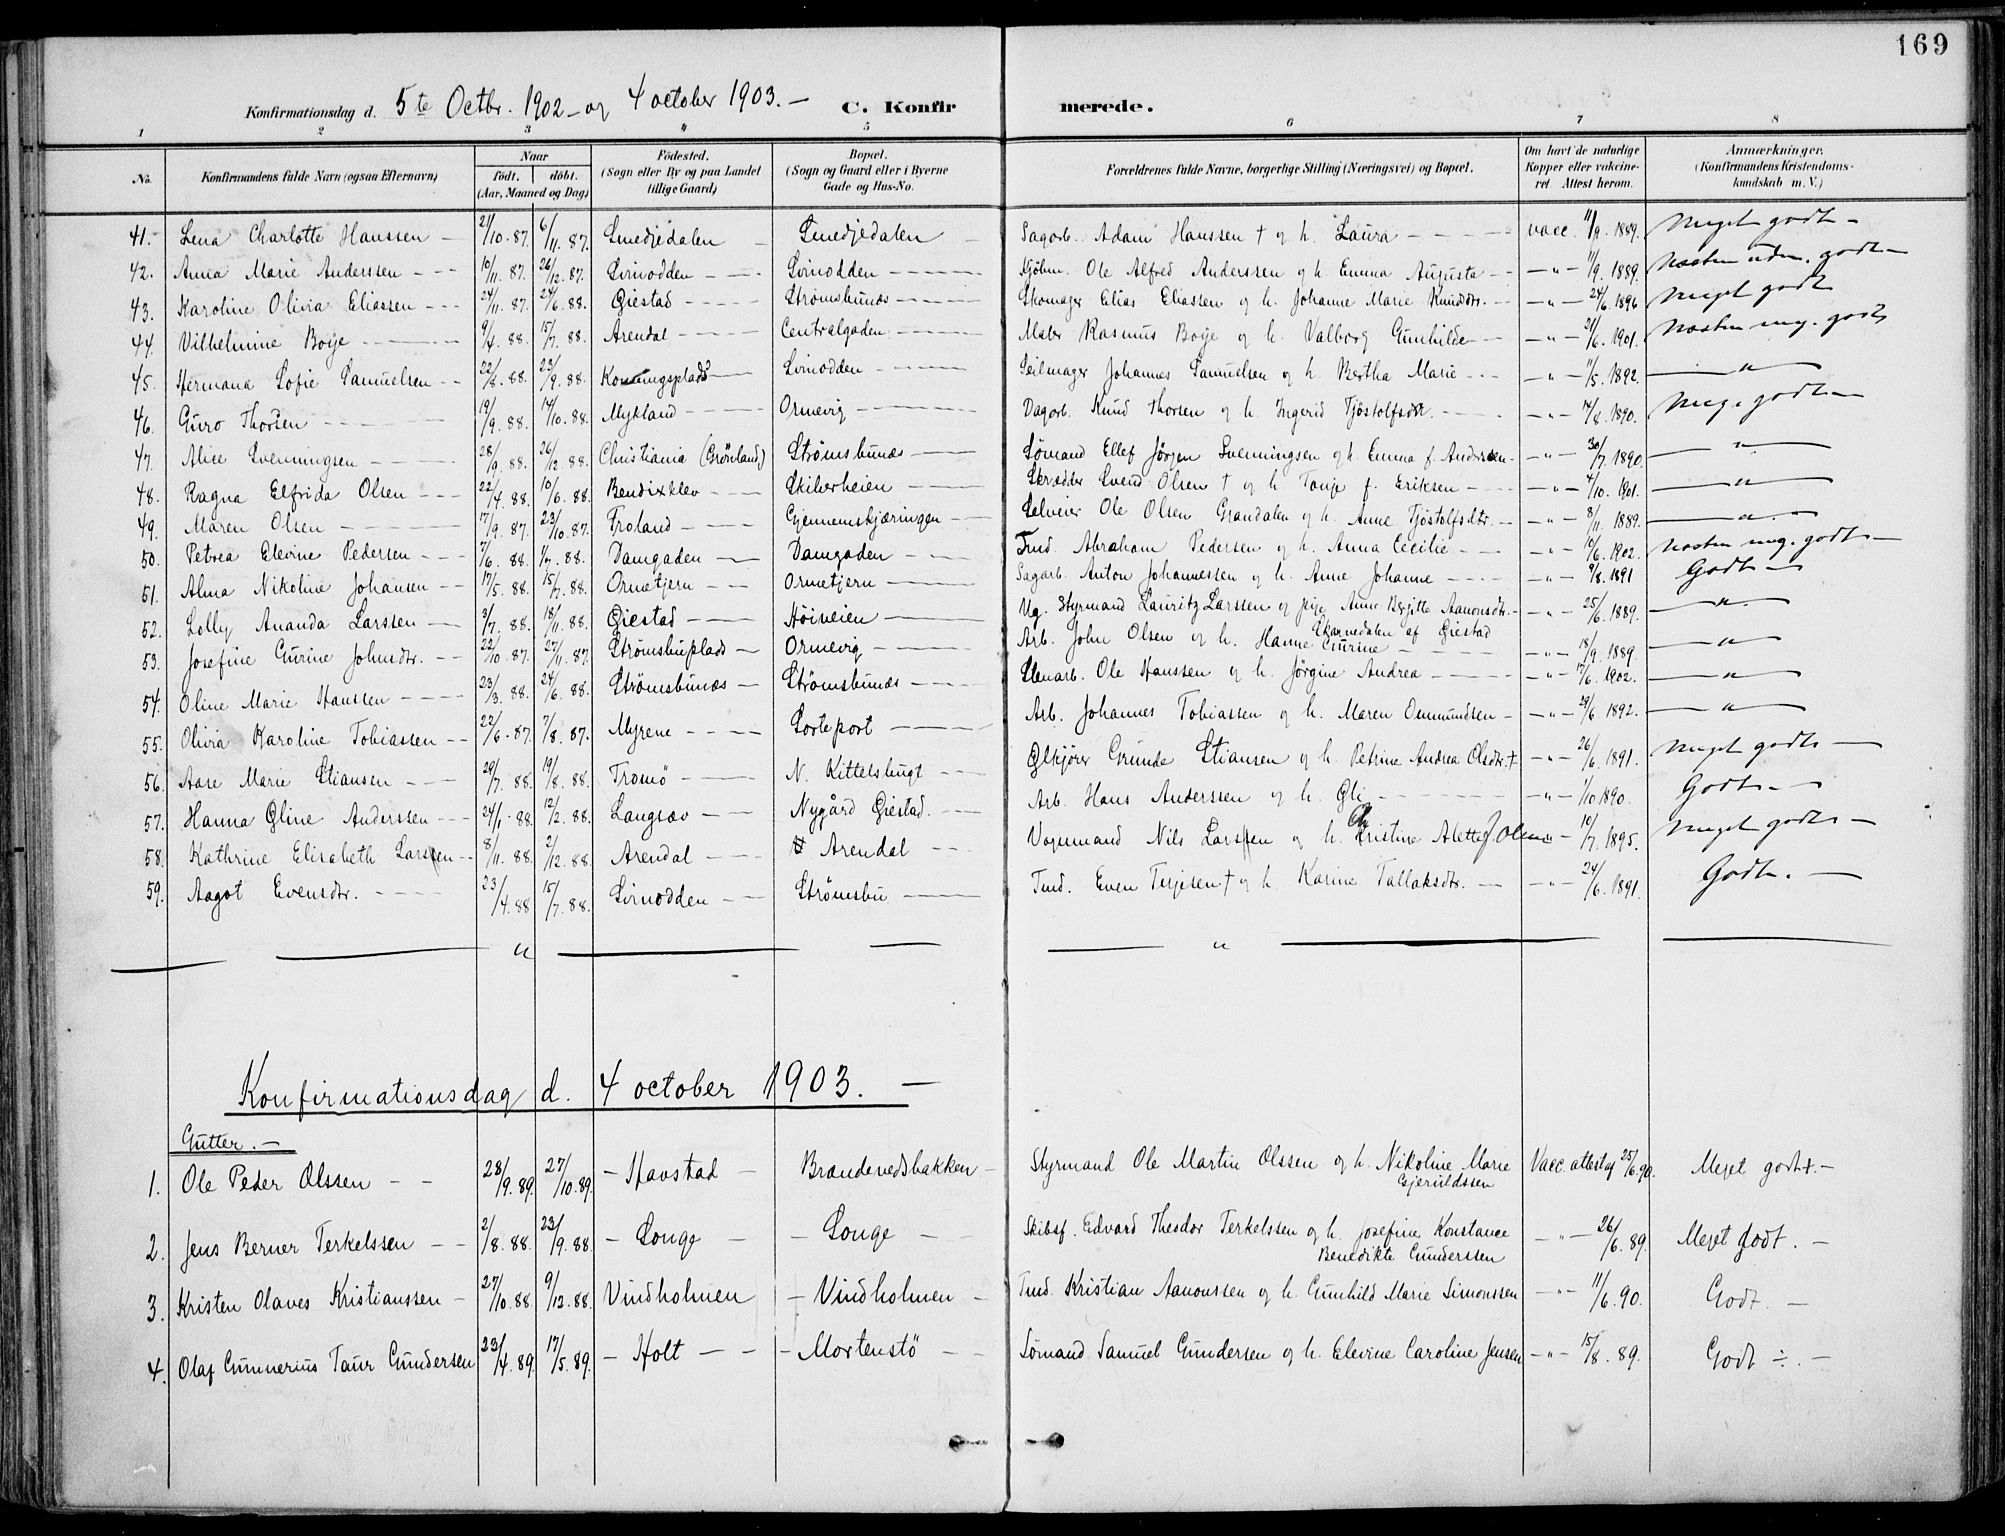 169
Konfirmationsdag d. 5te Octbr. 1902 - og 4 october 1903. - C. Konfirmerede.
1 2 3 4 5 6 7 8
No. Konfirmandens fulde Navn (ogsaa Efternavn) Naar født. døbt. (Aar, Maaned og Dag) Fødested. (Sogn eller By og paa Landet tillige Gaard) Bopæl. (Sogn og Gaard eller i Byerne Gade og Hus-No. Forældrenes fulde Navne, borgerlige Stilling (Næringsvei) og Bopæl. Om havt de naturlige Kopper eller vakcineret. Attest herom. Anmærkninger. (Konfirmandens Kristendomskundskab m. V.)
41. Lena Charlotte Hanssen 21/10. 87. 6/11. 87. Smedjedalen Smedjedalen Sagarb. Adam Hanssen † og h. Laura vacc. 11/9. 1889. Meget godt
42. Anna Marie Anderssen 10/11. 87. 26/12. 87. Svinodden Svinodden Kjøbm. Ole Alfred Anderssen og h. Emma Augusta - " - 11/9. 1889. Næsten udm. godt
43. Karoline Olivia Eliassen 24/11. 87. 24/6. 88. Giestad Strømsbunæs Skomager Elias Eliassen og h. Johanne Marie Knudsdtr. - " - 24/6. 1896 Meget godt
44. Vilhelmine Boye 9/4. 88. 15/7. 88. Arendal Centralgaden Maler Rasmus Boye og h. Valborg Gunhilde - " - 21/6. 1901. Næsten meg. godt
45. Hermana Sofie Samuelsen 22/8. 88. 23/9. 88. Svinodden Seilmager Johannes Samuelsen og h. Bertha Marie - " - 11/5. 1892. "
46. Guro Thorsen 19/9. 88. 14/10. 88. Mykland Ormevig Dagarb. Knud Thorsen og h. Ingerid Tjöstolfsdtr. - " - 14/8. 1890. Meg. godt
47. Alise Svenningsen 28/9. 88. 26/12. 88. Christiania (Grønland) Strømsbunæs Sømand Ellef Jörgen Svenningsen og h. Emma f. Andersen - " - 30/7. 1890. "
48. Ragna Elfrida Olsen 22/4. 88. 10/6. 88. Bendixklev Skilerheien Skrædder Svend Olsen † og h. Tonje f. Eriksen - " - 4/10. 1901. "
49. Maren Olsen 17/9. 87. 23/10. 87. Froland Gjennemskjæringen Selveier Ole Olsen Grandalen og h. Anne Tjöstolfsdtr. - " - 8/11. 1889. "
50. Petrea Elevine Pedersen 7/6. 88. 1/7. 88. Damgaden Damgaden Tmd. Abraham Pedersen og h. Anna Cecilie - " - 10/6. 1902. Næsten meg. godt
51. Alma Nikoline Johansen 17/5. 88. 15/7. 88. Ormetjern Ormetjern Sagarb. Anton Johannessen og h. Anne Johanne - " - 9/8. 1891 Godt
52. Lolly Ananda Larssen 3/7. 88. 18/11. 88. Giestad Høiveien Ug. Styrmand Lauritz Larssen og pige Anne Birgitte Aanonsdtr. - " - 25/6. 1889. "
Skarvedalen af Giestad
53. Josefine Gurine Johnsdtr. 22/10. 87. 27/11. 87. Strømsbuplads Ormevig Arb. John Olsen og h. Hanne Gurine - " - 18/9. 1889. "
54. Oline Marie Hanssen 23/3. 88. 24/6. 88. Strømsbunæs Strømsbunæs Stenarb. Ole Hanssen og h. Jörgine Andrea - " - 17/6. 1902. "
55. Olivia Karoline Tobiassen 22/6. 87. 7/8. 87. Myrene Sorteport Arb. Johannes Tobiassen og h. Maren Ommundsen - " - 29/6 1892. "
56. Aase Marie Stiansen 29/7. 88. 19/8. 88. Tromö N. Kittelsbugt Ølkjører Grunde Stiansen og h. Petrine Andrea Olsdtr. † - " - 26/6. 1891. Meget godt
57. Hanna Oline Anderssen 24/1. 88. 12/2. 88. Langsæv Nygård Giestad. Arb. Hans Anderssen og h. - " - 1/10. 1890. Godt
58. Kathrine Elisabeth Larssen 8/11. 88. 2/12. 88. Arendal Arendal Vognmand Nils Larssen og h. Christine Alette J. Olsen " - 10/7. 1895. Meget godt
59. Aagot Evensdtr. 23/4. 88 15/7. 88. Svinodden Strømsbu Tmd. Even Terjesen † og h. Karine Tallaksdtr. - " - 24/6. 1891. Godt.
" "
Konfirmationsdag d. 4 october 1903. -
Gutter. -
1. Ole Peder Olssen 28/9. 89. 27/10. 89. Havstad Brændevedsbakken Styrmand Ole Martin Olssen og h. Nikoline Marie Gjeruldssen Vacc. attest af 25/6. 90. Meget godt +. -
2. Jens Berner Terkelssen 2/8. 88. 23/9. 88. Songe Songe Skibsf. Edvard Theodor Terkelssen og h. Josefine Konstance Benedikte Gunderssen - " - 26/6. 89. Meget godt. -
3. Kristen Olaves Kristianssen 27/10. 88. 9/12. 88. Vindholmen Vindholmen Tmd. Kristian Aanonssen og h. Gunhild Marie Simonssen - " - 11/6. 90. Godt. -
4. Olaf Gunnerius Taur Gundersen 23/4. 89. 17/5. 89. Holt Mortenstö Sømand Samuel Gundersen og h. Elevine Caroline Jensen - " - 15/8. 89. Godt ÷. -